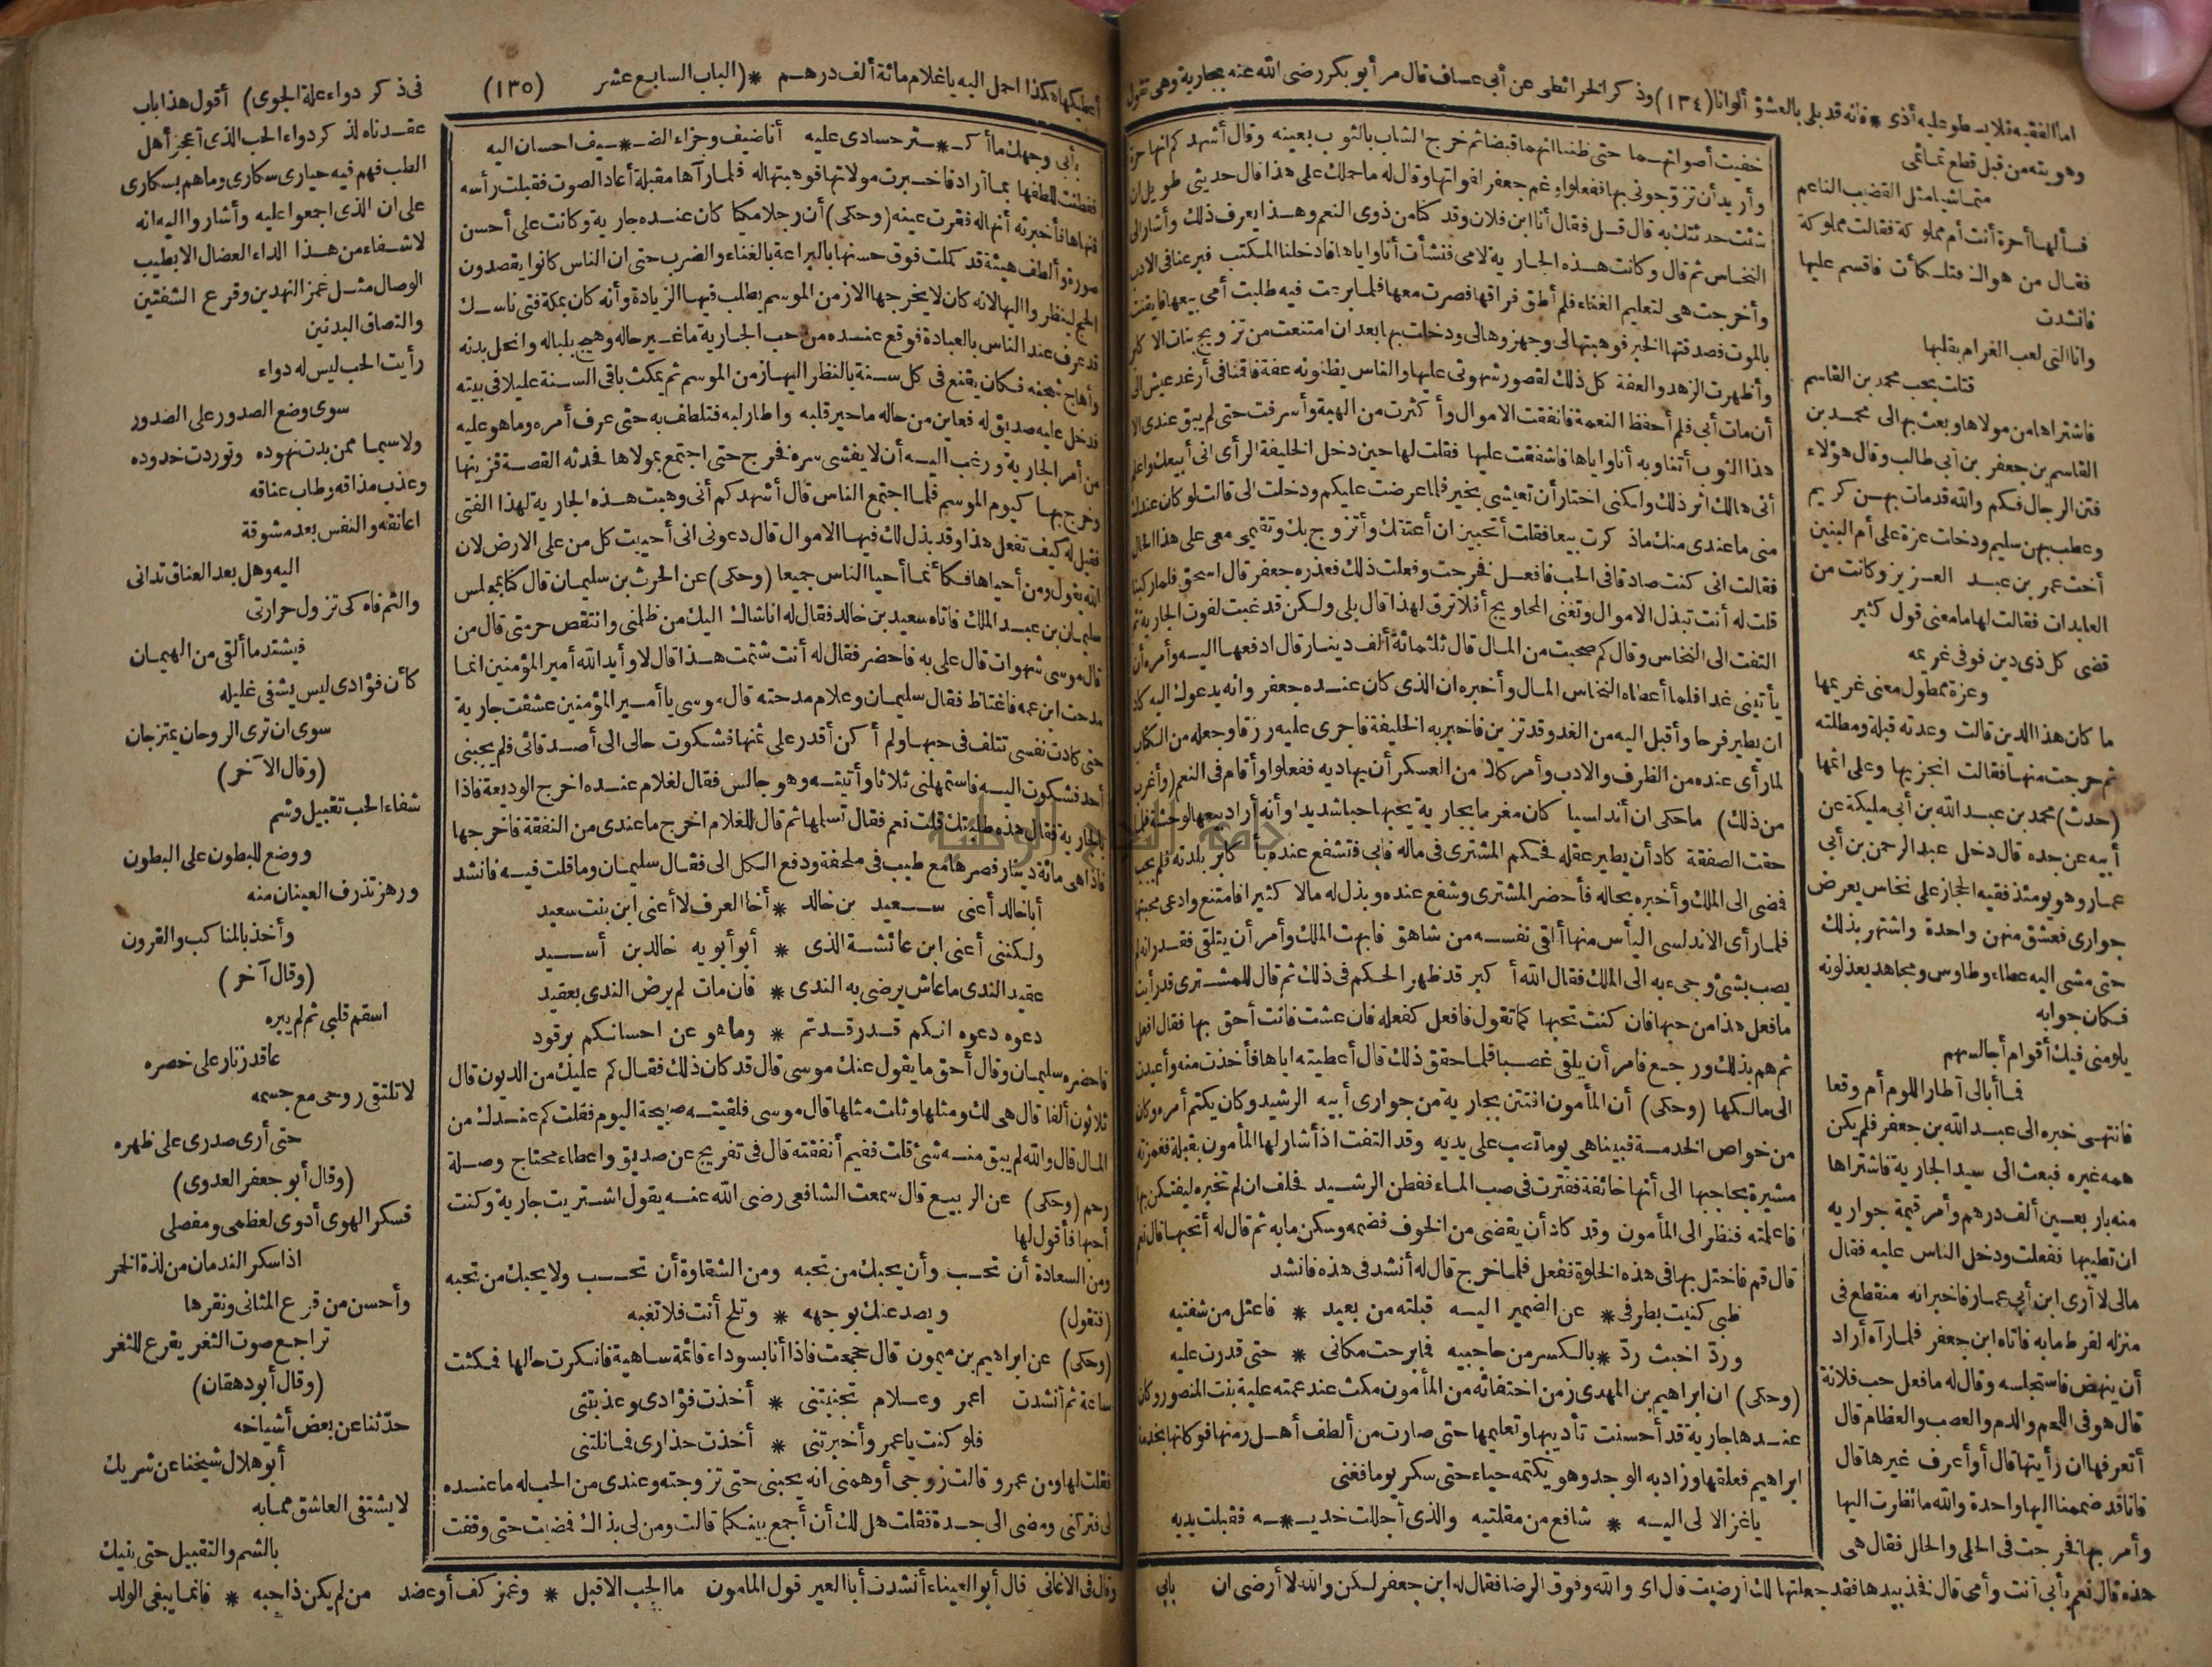 اما الفقيه فلا يسطو عليه أذى * فانه قد بلى بالعشق ألوانا (١٣٤) وذكر الخرائطى عن أبى عساف قال مر أبو بكر رضى الله عنه بجارية وهى تقول
وهويته من قبل قطع تمائمى
متماشيا مثل القضيب الناعم
فسألها أحرة أنت أم مملوكة فقالت مملوكة
فقال من هواك فتلكأت فاقسم عليها
فانشدت
وانا التى لعب الغرام بقلبها
قتلت بحب محمد بن القاسم
فاشتراها من مولاها وبعث بها الى محمد بن
القاسم بن جعفر بن أبى طالب وقال هؤلاء
فتن الرجال فكم والله قد مات بهن كريم
وعطب بهن سليم ودخلت عزة على أم البنين
أخت عمر بن عبد العزيز وكانت من
العابدات فقالت لها ما معنى قول كثير
قضى كل ذى دين فوفى غريمه
وعزة ممطول معنى غريمها
ما كان هذا الدين قالت وعدته قبلة ومطلته
ثم خرجت منها فقالت انجزيها وعلى اثمها
(حدث) محمد بن عبد الله بن أبى مليكة عن
أبيه عن جده قال دخل عبد الرحمن بن أبى
عمار وهو يومئذ فقيه الحجاز على نخاس يعرض
جوارى فعشق منهن واحدة واشتهر بذلك
حتى مشى اليه عطاء وطاوس ومجاهد يعذلونه
فكان جوابه
يلومنى فيك أقوام أجالسهم
فما أبالى أطار اللوم أم وقعا
فانتهى خبره الى عبد الله بن جعفر فلم يكن
همه غيره فبعث الى سيد الجارية فاشتراها
منه باربعين ألف درهم وأمر قيمة جواريه
ان تطيبها ففعلت ودخل الناس عليه فقال
مالى لا أرى ابن أبى عمار فاخبر انه منقطع فى
منزله لفرط ما به فاتاه ابن جعفر فلما رآه أراد
أن ينهض فاستجلسه وقال له ما فعل حب فلانة
قال هو فى اللحم والدم والعصب والعظام قال
أتعرفها ان رأيتها قال أوأعرف غيرها قال
فانا قد ضممنا اليها واحدة والله ما نظرت اليها
وأمر بها فخرجت فى الحلى والحلل فقال هى
هذه قال نعم بأبى أنت وأمى قال فخذ بيدها فقد جعلتها لك أرضيت قال اى والله وفوق الرضا فقال له ابن جعفر لكن والله لا أرضى ان
خفيت أصواتهما حتى ظننا انهما قبضا ثم خرج الشاب بالثوب بعينه وقال أشهدكم انها حرة
وأريد أن تزوجونى بها ففعلوا وغم جعفر لفواتها وقال له ما حملك على هذا قال حديثى طويل ان
شئت حدثتك به قال قل فقال أنا ابن فلان وقد كنا من ذوى النعم وهذا يعرف ذلك وأشار الى
النخاس ثم قال وكانت هذه الجارية لامى فنشأت أنا واياها فادخلنا المكتب فبرعنا فى الادب
وأخرجت هى لتعليم الغناء فلم أطق فراقها فصرت معها فلما برعت فيه طلبت أمى بيعها فايقنت
بالموت فصدقتها الخبر فوهبتها لى وجهزوها لى ودخلت بها بعد ان امتنعت من تزويج بنات الاكابر
وأظهرت الزهد والعفة كل ذلك لقصور شهوتى عليها والناس يظنونه عفة فاقنا فى أرغد عيش الى
أن مات أبى فلم أحفظ النعمة فانفقت الاموال وأكثرت من الهبة وأسرفت حتى لم يبق عندى الا
هذا الثوب أتناوبه أنا واياها فاشفقت عليها فقلت لها حين دخل الخليفة الرأى انى أبيعك واعلم
أنى هالك اثر ذلك ولكنى اختار أن تعيشى بخير فلما عرضت عليكم ودخلت الى قالت لو كان عندك
منى ما عندى منك ما ذكرت بيعا فقلت أتحبين ان أعتقك وأتزوج بك وتقيمى معى على هذا الحال
فقالت انى كنت صادقا فى الحب فافعل فخرجت وفعلت ذلك فعذره جعفر قال اسحق فلما ركبنا
قلت له أنت تبذل الاموال وتغنى المحاويج أفلا ترق لهذا قال بلى ولكن قد غبت لفوت الجارية ثم
التفت الى النخاس وقال كم صحبت من المال قال ثلثمائة ألف دينار قال ادفعها اليه وأمره أن
يأتينى غدا فلما أعطاه النخاس المال وأخبره ان الذى كان عنده جعفر وانه يدعوك اليه كاد
ان يطير فرحا وأقبل اليه من الغد وقد تزين فاخبر به الخليفة فاجرى عليه رزقا وجعله من الكتاب
لما رأى عنده من الظرف والادب وأمر كلا من العسكر أن يهاديه ففعلوا وأقام فى النعم (وأغرب
من ذلك) ما حكى ان أندلسيا كان مغرما بجارية يحبها حبا شديدا وأنه أراد بيعها لوحشة فلما
حقت الصفقة كاد أن يطير عقله فحكم المشترى فى ماله فابى فتشفع عنده بأكابر بلدته فلم يجب
فمضى الى الملك وأخبره بحاله فأحضر المشترى وشفع عنده وبذل له مالا كثيرا فامتنع وادعى محبتها
فلما رأى الاندلسى اليأس منها ألقى نفسه من شاهق فابهت الملك وأمر أن يتلقى فقدر انه لم
يصب بشئ وجىء به الى الملك فقال الله أكبر قد ظهر الحكم فى ذلك ثم قال للمشترى قد رأيت
ما فعل هذا من حبها فان كنت تحبها كما تقول فافعل كفعله فان عشت فانت أحق بها فقال افعل
ثم هم بذلك ورجع فامر أن يلقى غصبا فلما حقق ذلك قال أعطيته اياها فأخذت منه وأعيدت
الى مالكها (وحكى) أن المأمون افتتن بجارية من جوارى أبيه الرشيد وكان يكتم أمره وكان
من خواص الخدمة فبينا هى يوما تصب على يديه وقد التفت اذ أشار لها المأمون بقبلة فغمزته
مشيرة بحاجبها الى أنها خائفة ففترت فى صب الماء ففطن الرشيد فحلف ان لم تخبره ليفتكن بها
فاعلمته فنظر الى المأمون وقد كاد أن يقضى من الخوف فضمه وسكن ما به ثم قال له أتحبها قال نعم
قال قم فاختل بها فى هذه الخلوة ففعل فلما خرج قال له أنشد فى هذه فانشد
ظبى كنيت بطرفى * عن الضمير اليه قبلته من بعيد * فاعتل من شفتيه
ورد اخبث رد * بالكسر من حاجبيه فما برحت مكانى * حتى قدرت عليه
(وحكى) ان ابراهيم بن المهدى زمن اختفائه من المأمون مكث عند عمته علية بنت المنصور وكان
عندها جارية قد أحسنت تأديبها وتعليمها حتى صارت من ألطف أهل زمنها فوكلتها بخدمة
ابراهيم فعلقها وزاد به الوجد وهو يكتمه حياء حتى سكر يوما فغنى
يا غزالا لى اليه * شافع من مقلتيه والذى أجللت خديـ * ـه فقبلت يديه
بابى
أعطيكها هكذا احمل اليه يا غلام مائة ألف درهم * (الباب السابع عشر (١٣٥) فى ذكر دواء علة الجوى) أقول هذا باب
بأبى وجهك ما أكـ * ـثر حسادى عليه أنا ضيف وجزاء الضـ * ـيف احسان اليه
ففطنت للطفها بما أراد فاخبرت مولاتها فوهبتها له فلما رآها مقبلة أعاد الصوت فقبلت رأسه
فنهاها فأخبرته أنها له فقرت عينه (وحكى) أن رجلا مكيا كان عنده جارية وكانت على أحسن
صورة وألطف هيئة قد كملت فوق حسنها بالبراعة بالغناء والضرب حتى ان الناس كانوا يقصدون
الحج لينظروا اليها لانه كان لا يخرجها الا زمن الموسم يطلب فيها الزيادة وأنه كان بمكة فتى ناسك
قد عرف عند الناس بالعبادة فوقع عنده من حب الجارية ما غير حاله وهيج بلباله وانحل بدنه
وأهاج شجنه فكان يقنع فى كل سنة بالنظر اليها زمن الموسم ثم يمكث باقى السنة عليلا فى بيته
فدخل عليه صديق له فعاين من حاله ما حير قلبه واطار لبه فتلطف به حتى عرف أمره وما هو عليه
من أمر الجارية ورغب اليه أن لا يفشى سره فخرج حتى اجتمع بمولاها فحدثه القصة فزينها
وخرج بها كيوم الموسم فلما اجتمع الناس قال أشهدكم أنى وهبت هذه الجارية لهذا الفتى
فقيل له كيف تفعل هذا وقد بذل لك فيها الاموال قال دعونى انى أحييت كل من على الارض لان
الله يقول ومن أحياها فكأنما أحيا الناس جميعا (وحكى) عن الحرث بن سليمان قال كنا بمجلس
سليمان بن عبد الملك فاتاه سعيد بن خالد فقال له اناشاك اليك من ظلمنى وانتقص حرمتى قال من
قال موسى شهوات قال على به فاحضر فقال له أنت شتمت هذا قال لا وأيد الله أمير المؤمنين انما
مدحت ابن عمه فاغتاظ فقال سليمان وعلام مدحته قال موسى يا أمير المؤمنين عشقت جارية
حتى كادت نفسى تتلف فى حبها ولم أكن أقدر على ثمنها فشكوت حالى الى أصدقائى فلم يجبنى
أحد فشكوت اليه فاستمهلنى ثلاثا وأتيته وهو جالس فقال لغلام عنده اخرج الوديعة فاذا
بالجارية فقال هذه طلبتك قلت نعم فقال تسلمها ثم قال للغلام اخرج ما عندى من النفقة فاخرجها
فاذا هى مائة دينار فصرها مع طيب فى ملحفة ودفع الكل الى فقال سليمان وما قلت فيه فانشد
أبا خالد أعنى سعيد بن خالد * أخا العرف لا أعنى ابن بنت سعيد
ولكننى أعنى ابن عائشة الذى * أبو أبويه خالد بن أسيد
عقيد الندى ما عاش يرضى به الندى * فان مات لم يرض الندى بعقيد
دعوه دعوه انكم قد رقدتم * وما هو عن احسانكم برقود
فاحضره سليمان وقال أحق ما يقول عنك موسى قال قد كان ذلك فقال كم عليك من الديون قال
ثلاثون ألفا قال هى لك ومثلها وثلث مثلها قال موسى فلقيته صبيحة اليوم فقلت كم عندك من
المال قال والله لم يبق منه شئ قلت ففيم أنفقته قال فى تفريج عن صديق واعطاء محتاج وصلة
رحم (وحكى) عن الربيع قال سمعت الشافعى رضى الله عنه يقول اشتريت جارية وكنت
أحبها فأقول لها
ومن السعادة أن تحب وأن يحبك من تحبه ومن الشقاوة أن تحب ولا يحبك من تحبه
(فتقول) ويصد عنك بوجهه * وتلح أنت فلا تغبه
(وحكى) عن ابراهيم بن ميمون قال حججت فاذا أنا بسوداء قائمة ساهية فانكرت حالها فمكثت
ساعة ثم أنشدت اعمر وعلام تجنبتنى * أخذت فؤادى وعذبتنى
فلو كنت يا عمر وأخبرتنى * أخذت حذارى فما نلتنى
فقلت لها ومن عمرو قالت زوجى أوهمنى انه يحبنى حتى تزوجته وعندى من الحب له ما عنده
لى فتركنى ومضى الى جدة فقلت هل لك أن أجمع بينكما قالت ومن لى بذاك فمضيت حتى وقفت
عقدناه لذكر دواء الحب الذى أعجز أهل
الطب فهم فيه حيارى سكارى وما هم بسكارى
على ان الذى اجمعوا عليه وأشاروا اليه انه
لا شفاء من هذا الداء العضال الا بطيب
الوصال مثل غمز النهدين وقرع الشفتين
والتصاق البدنين
رأيت الحب ليس له دواء
سوى وضع الصدور على الصدور
ولا سيما ممن بدت نهوده وتوردت خدوده
وعذب مذاقه وطاب عناقه
اعانقه والنفس بعد مشوقة
اليه وهل بعد العناق تدانى
والثم فاه كى تزول حرارتى
فيشتد ما ألقى من الهيمان
كأن فؤادى ليس يشفى غليله
سوى ان ترى الروحان يمتزجان
(وقال الآخر)
شفاء الحب تقبيل وشم
ووضع للبطون على البطون
ورهز تذرف العينان منه
وأخذ بالمناكب والقرون
(وقال آخر)
اسقم قلبى ثم لم يبره
عاقد زنار على خصره
لا تلتقى روحى مع جسمه
حتى أرى صدرى على ظهره
(وقال أبو جعفر العدوى)
فسكر الهوى أدوى لعظمى ومفصلى
اذا سكر الندمان من لذة الخمر
وأحسن من قرع المثانى ونقرها
تراجع صوت الثغر يقرع للثغر
(وقال أبو دهقان)
حدثنا عن بعض أشياخه
أبو هلال شيخنا عن شريك
لا يشتفى العاشق مما به
بالشم والتقبيل حتى ينيك
وقال فى الاغانى قال أبو العيناء أنشدت أبا العبر قول المامون ما الحب الا قبل * وغمز كف أو عضد من لم يكن ذا حبه * فانما يبغى الولد